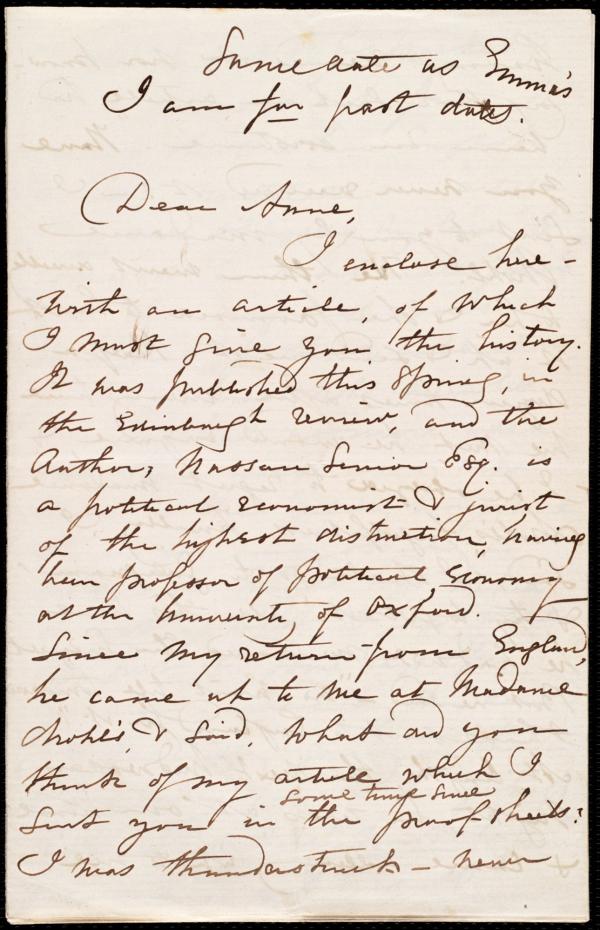 Same date as Emma's
I am far past dates.
Dear Anne,
I enclose here-
with an article, of which
I must give you the history.
It was published this Spring, in
the Edinburgh review, and the
Author, Nassau Senior Esq. is
a political economist & jurist
of the highest distinction, having
been professor of political, economy
at the University of Oxford.
Since my return from England,
he came up to me at Madame
Mohl's, & said, What did you
think of my article which I
some time since
sent you in the proof sheets:
I was thunderstruck - never